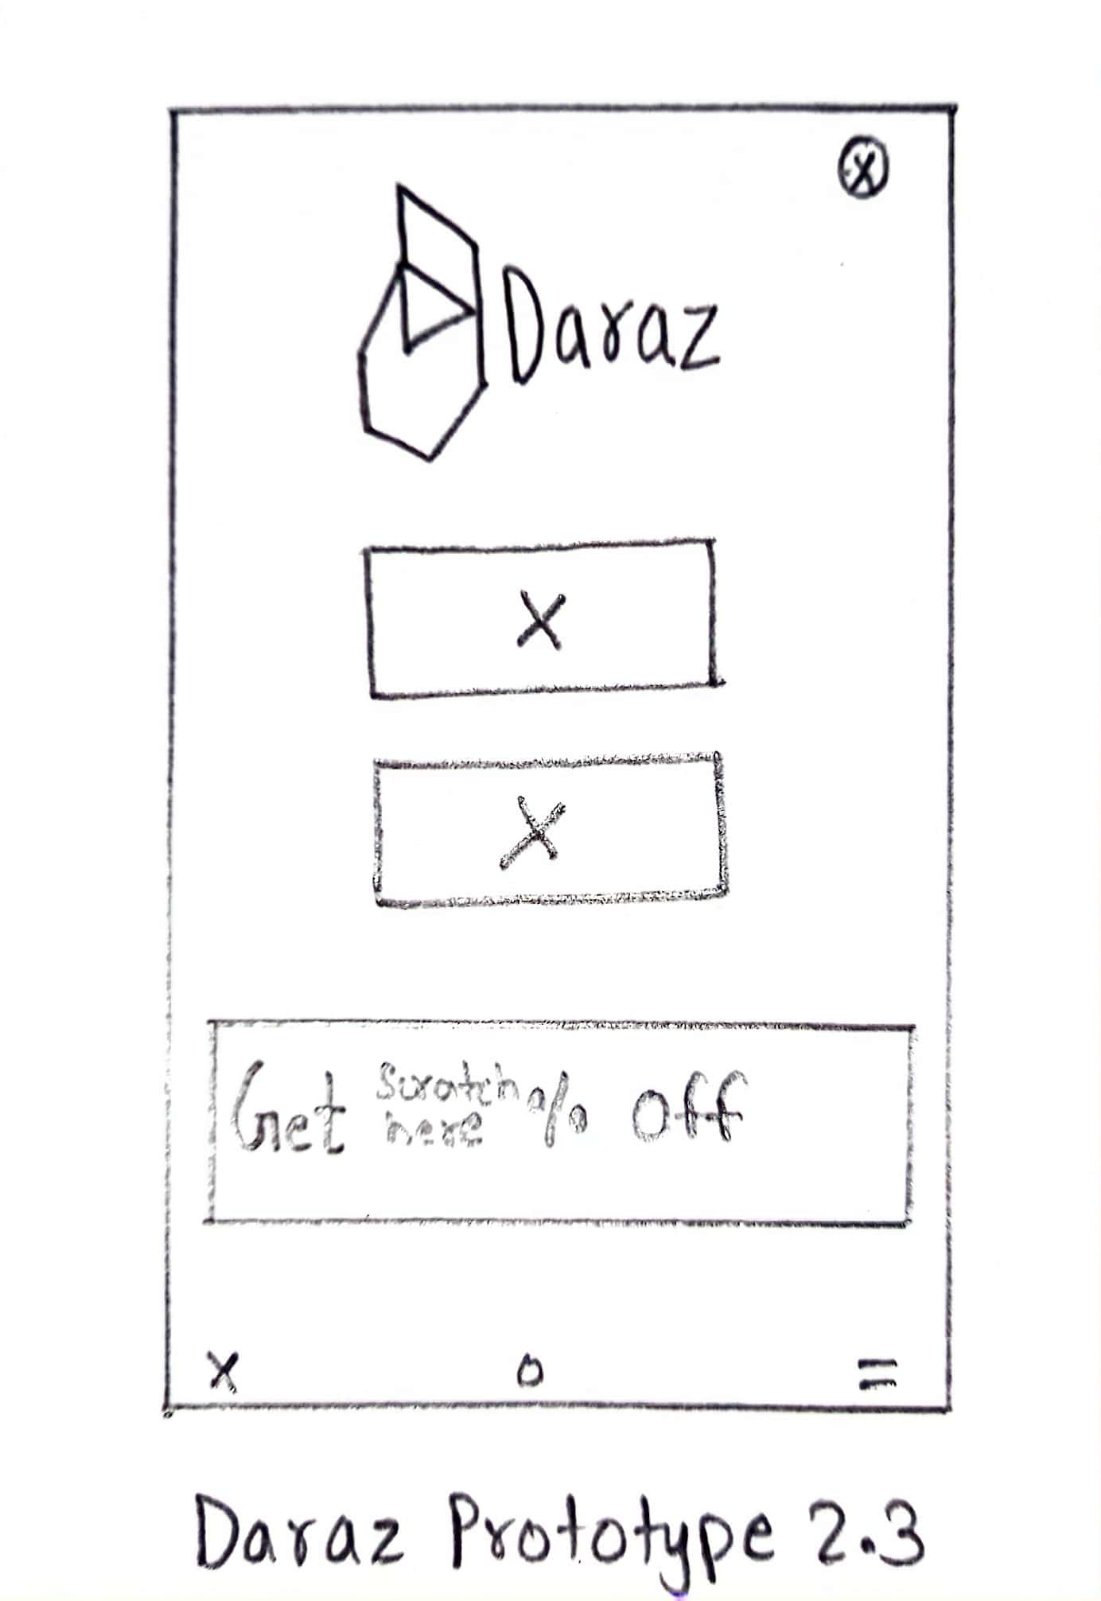 X
Daraz
X
X
Get Scratch here % off
X O =
Daraz Prototype 2.3